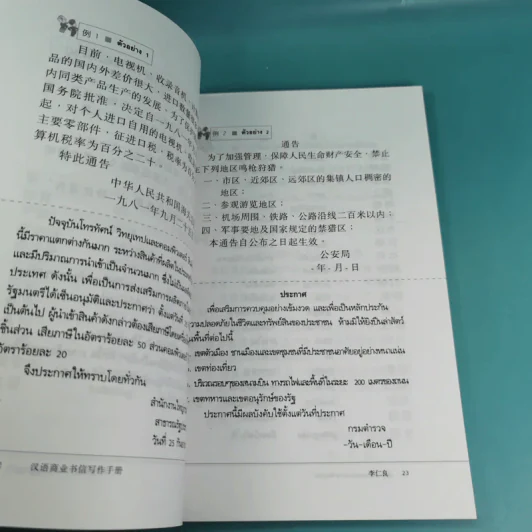 例 1 ตัวอย่าง 1
目前，电视机、收录音机
品的国内外差价很大，进口数量
内同类产品生产的发展，为了
国务院批准，决定自一九八一
起，对个人进口自用的电视机、
主要零部件，征进口税，税率为百
算机税率为百分之二十。
特此通告
中华人民共和国海关
一九八一年九月二十
ปัจจุบันโทรทัศน์ วิทยุเทปและคอมพิวเตอร์
นี้มีราคาแตกต่างกันมาก ระหว่างสินค้าที่ผลิตใน
และมีปริมาณการนำเข้าเป็นจำนวนมาก ซึ่งไม่
ประเทศ ดังนั้น เพื่อเป็นการส่งเสริมการผลิต
รัฐมนตรีได้เซ็นอนุมัติและประกาศว่า ตั้งแต่วันที่
เป็นต้นไป ผู้นำเข้าสินค้าดังกล่าวต้องเสียภาษี
ชิ้นส่วน เสียภาษีในอัตราร้อยละ 50 ส่วนคอมพิว
อัตราร้อยละ 20
จึงประกาศให้ทราบโดยทั่วกัน
สำนักงานใหญ่
สาธารณรัฐ
วันที่ 25 กัน
汉语商业书信写作手册
例 2 ตัวอย่าง 2
通告
为了加强管理，保障人民生命财产安全，禁止
在下列地区鸣枪狩猎。
一、市区、近郊区、远郊区的集镇人口稠密的
地区；
二、参观游览地区；
三、机场周围、铁路、公路沿线二百米以内；
四、军事要地及国家规定的禁猎区；
本通告自公布之日起生效。
公安局
年 月 日
ประกาศ
เพื่อเสริมการควบคุมอย่างเข้มงวด และเพื่อเป็นหลักประกัน
ความปลอดภัยในชีวิตและทรัพย์สินของประชาชน ห้ามมิให้ยิงปืนล่าสัตว์
ในพื้นที่ต่อไปนี้
เขตตัวเมือง ชานเมืองและเขตชุมชนที่มีประชาชนอาศัยอยู่อย่างหนาแน่น
เขตท่องเที่ยว
บริเวณรอบๆของสนามบิน ทางรถไฟและพื้นที่ในระยะ 200 เมตรของถนน
เขตทหารและเขตอนุรักษ์ของรัฐ
ประกาศนี้มีผลบังคับใช้ตั้งแต่วันที่ประกาศ
กรมตำรวจ
-วัน-เดือน-ปี
李仁良 23